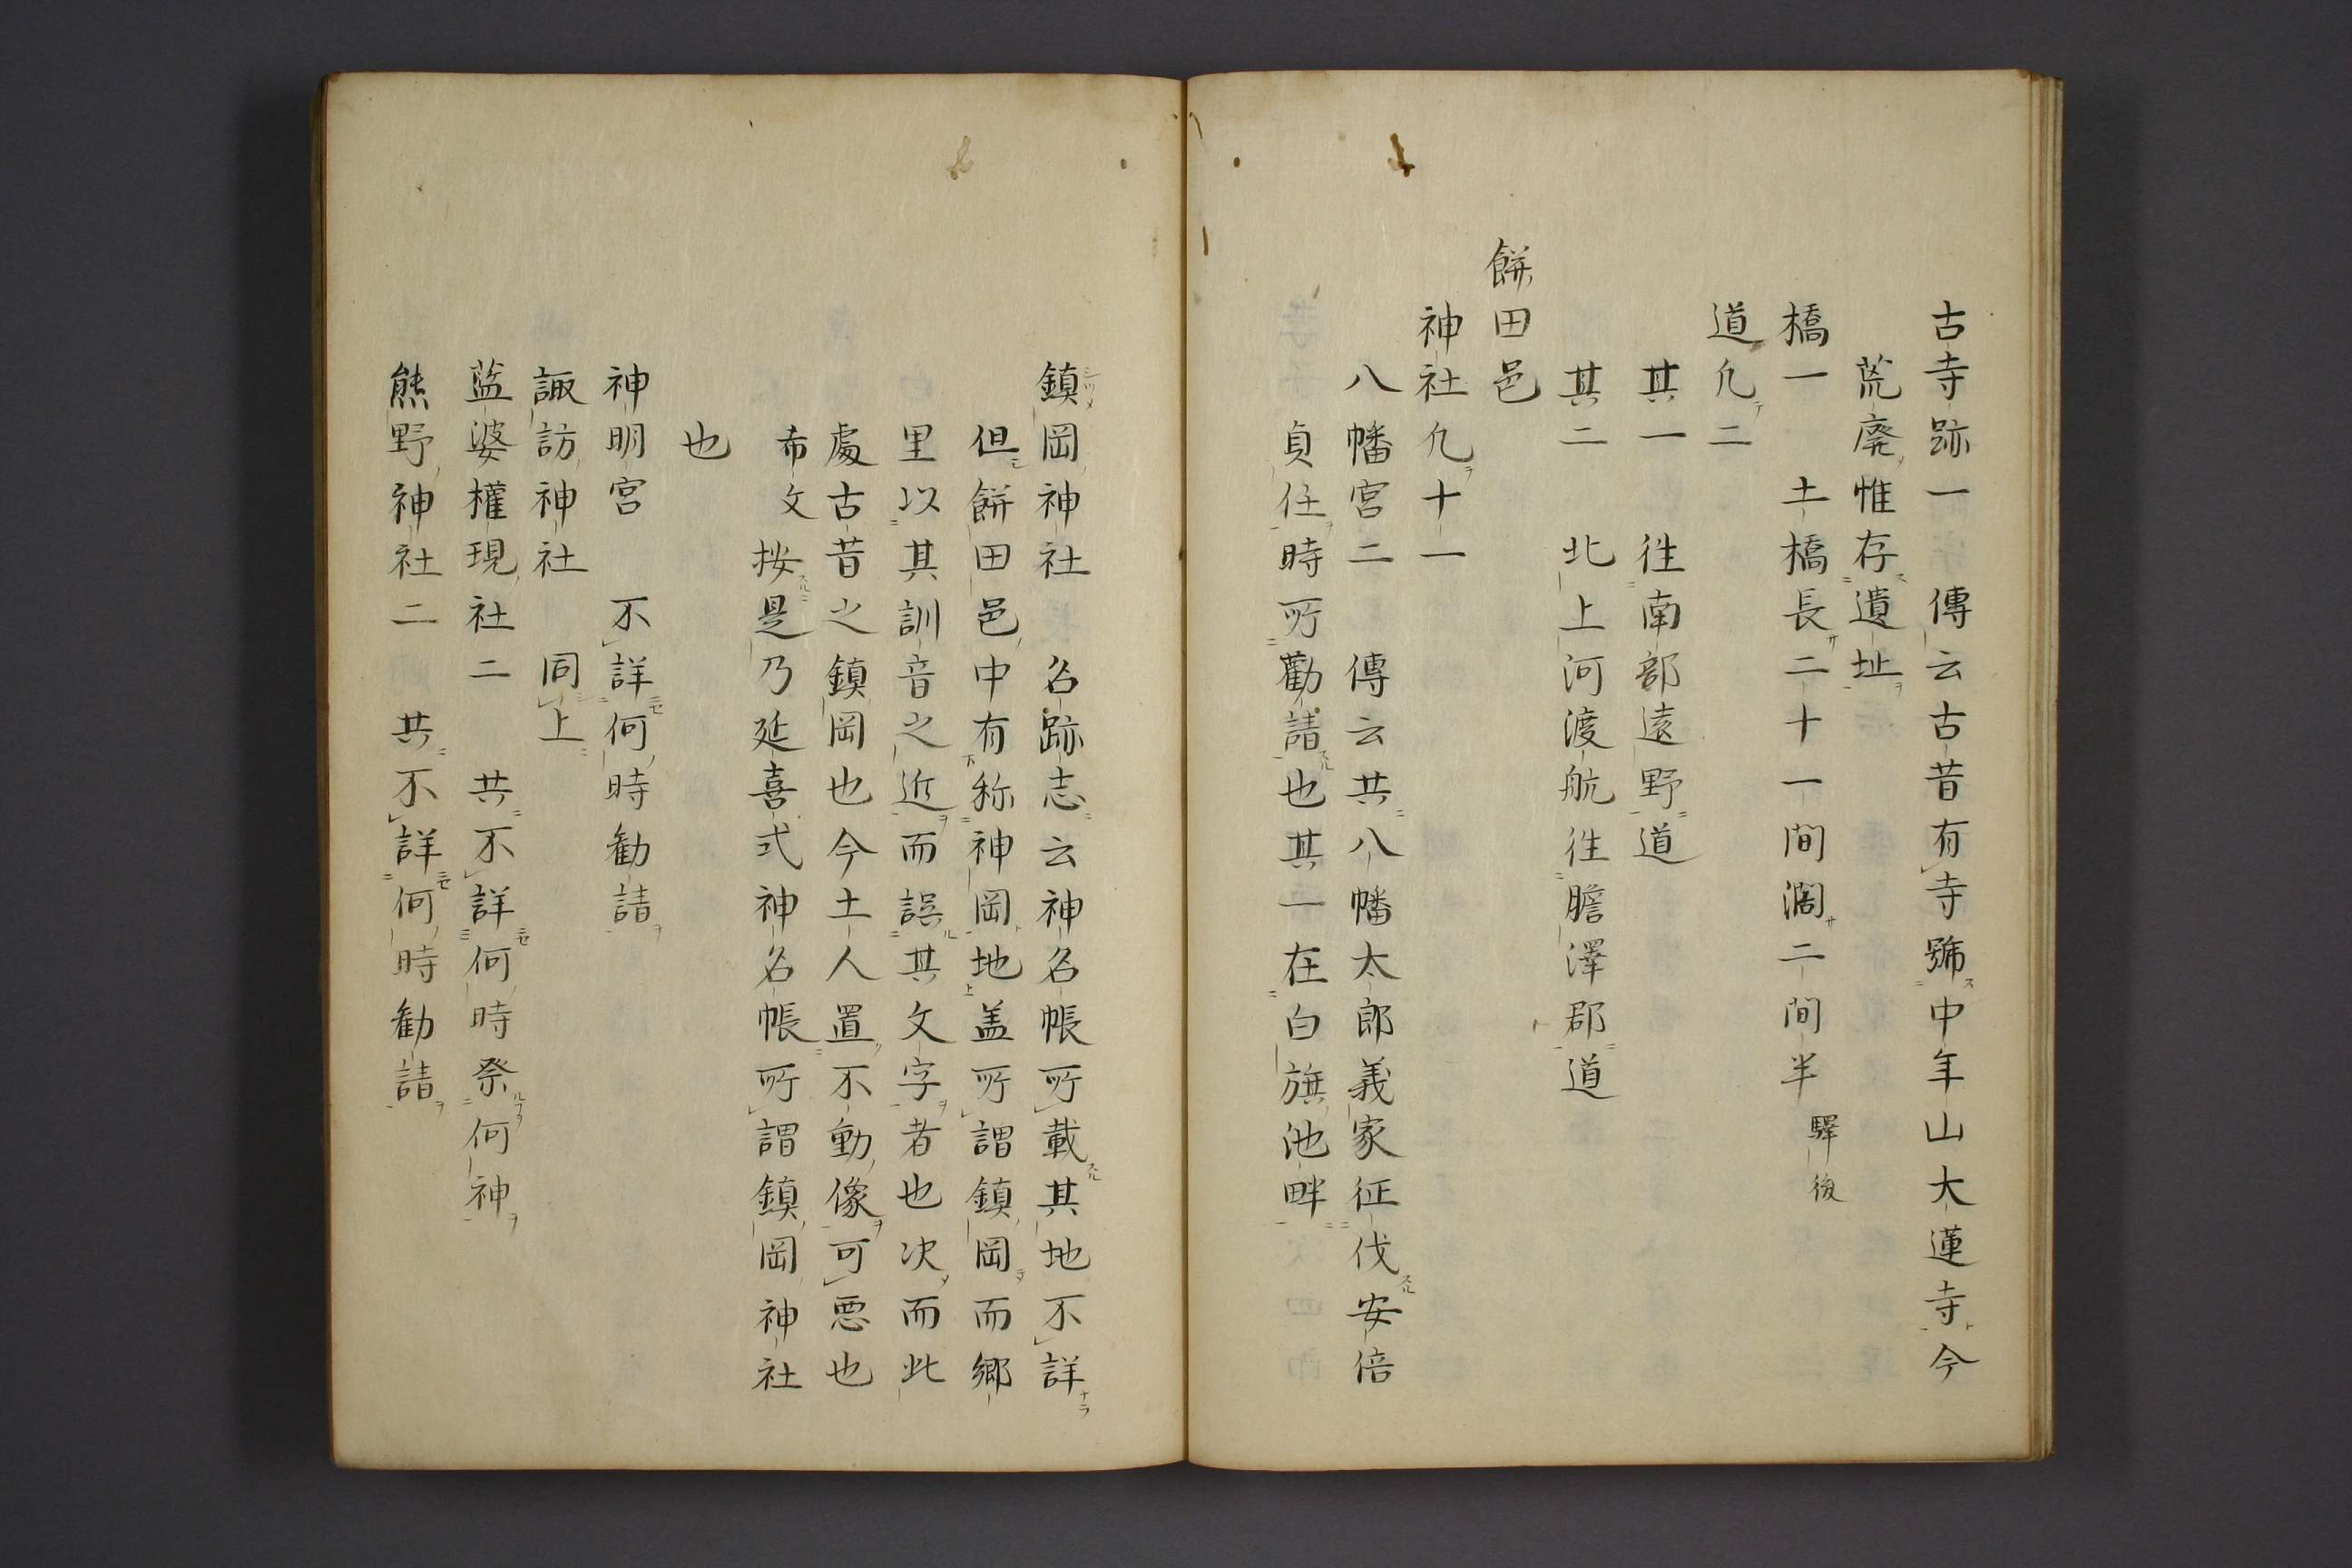 古寺跡一　傳云古昔有寺號中年山大蓮寺今
荒廃惟存遺址
橋一　土橋長二十一間濶二間半　驛後
道九二
其一　徃南部遠野道
其二　北上河渡航徃膽澤郡道
餅田邑
神社九十一
八幡宮二　傳云共八幡太郎義家征伐安倍
貞任時所勸請也其一在白旗池畔
鎮岡神社　名跡志云神名帳所載其地不詳
但餅田邑中有称神岡地盖所謂鎮岡而郷
里以其訓音之近而誤其文字者也次而此
處古昔之鎮岡也今土人置不動像可悪也
希文按是乃延喜式神名帳所謂鎮岡神社
也
神明宮　不詳何時勧請
諏訪神社　同上
藍婆權現社二　共不詳何時祭何神
熊野神社二　共不詳何時勧請